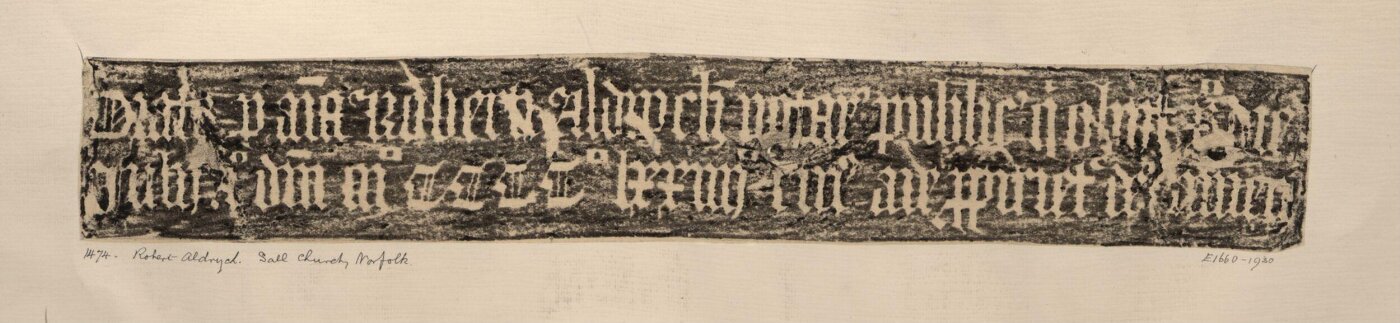 Orate p aīa Roberti Aldrych notar' public' q obijt
Julij Aº dm̄ mº CCCCº lxxiiij cui' aīe ppiciet' ds amen
1474 - Robert Aldrych. Sall Church, Norfolk.
E.1660-1930